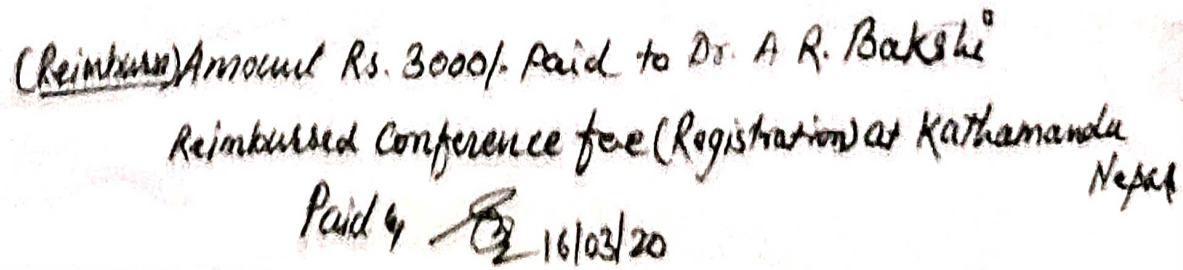 (Reimburse) Amount Rs. 3000/- Paid to Dr. A R. Bakshi
Reimbursed Conference fee (Registration) at Kathamandu
Nepal
Paid by 16/03/20